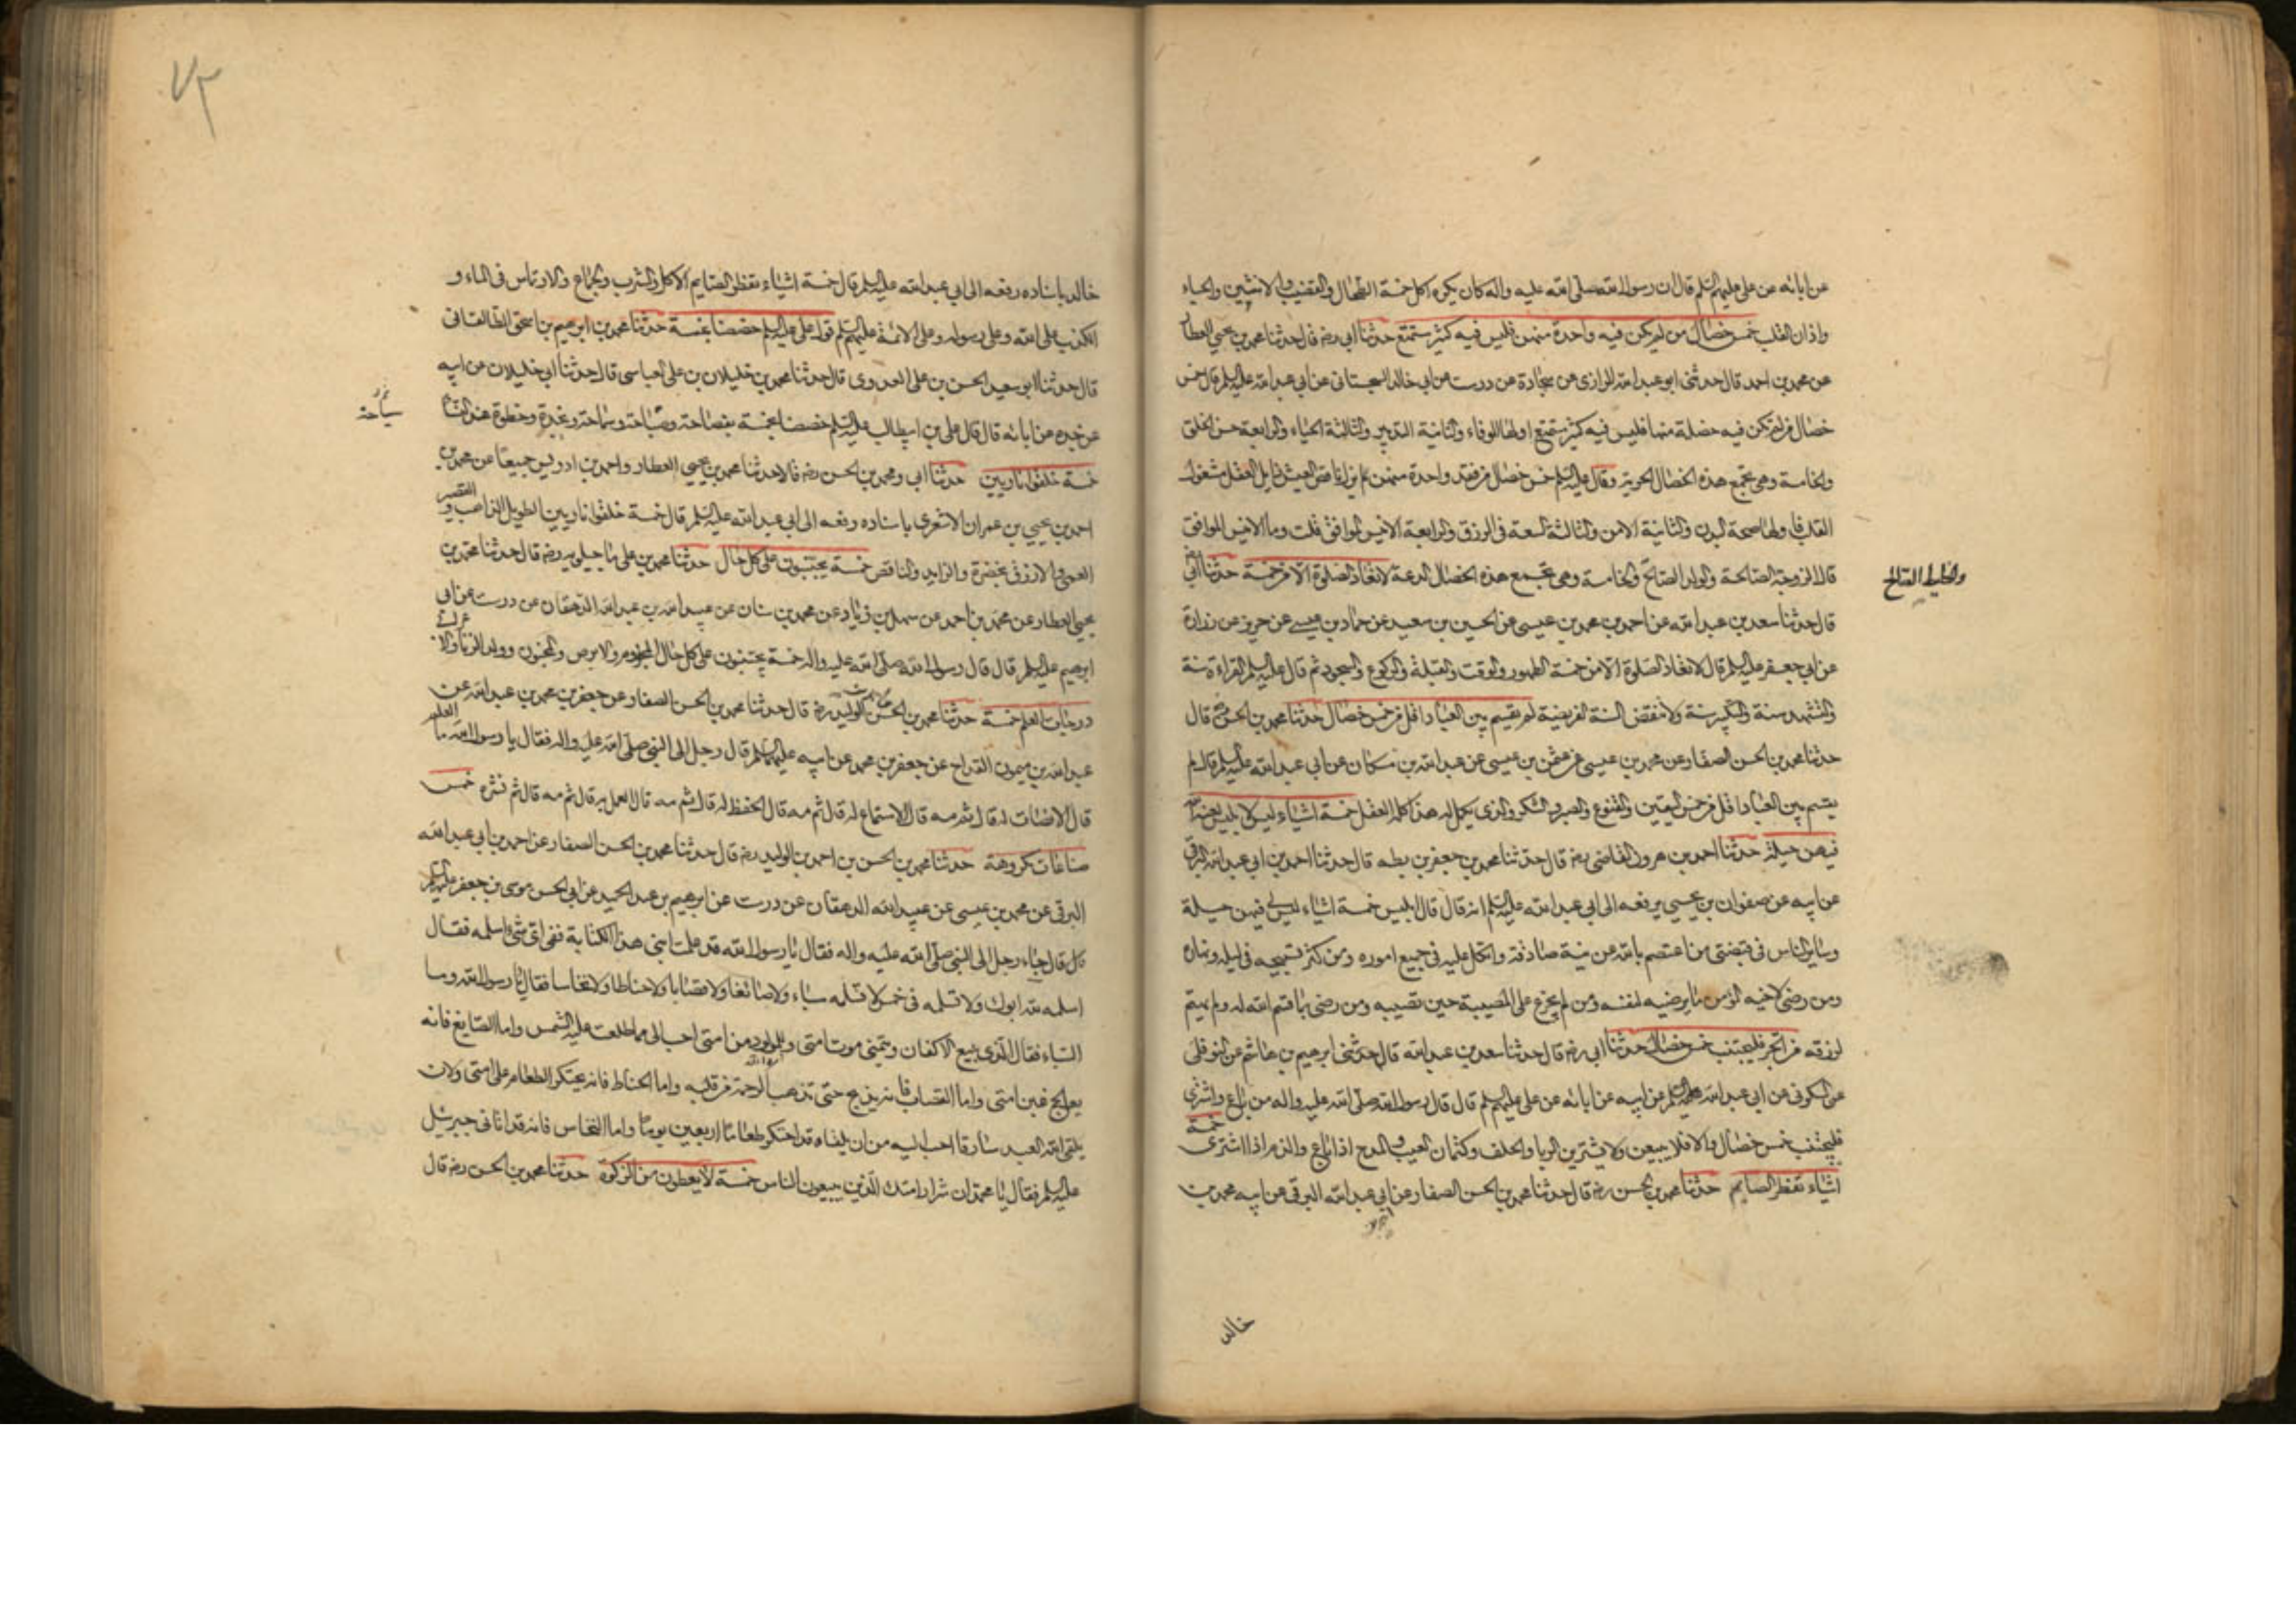 عن ابائه عن علي عليهم السلم قال ان رسول الله صلى الله عليه واله كان يكره اكل خمسة الطحال والقضيب والانثيين والحياء
واذان القلب خمس خصال من لم يكن فيه واحدة منهن فليس فيه كثير مستمتع حدثنا ابي رضه قال حدثنا محمد بن يحيى العطار
عن محمد بن احمد قال حدثنى ابو عبد الله الرازى عن سجادة عن درست عن ابى خالد السجستانى عن ابى عبد الله عليه السلم قال خمس
خصال من لم تكن فيه خصلة منها فليس فيه كثير مستمتع اولها الوفاء والثانية التدبير والثالثة الحياء والرابعة حسن الخلق
والخامسة وهى تجمع هذه الخصال الحرية وقال عليه السلم خمس خصال من فقد واحدة منهن لم يزل ناقص العيش زايل العقل مشغول
القلب فاولها صحة البدن والثانية الامن والثالثة السعة فى الرزق والرابعة الانيس الموافق قلت وما الانيس الموافق
قال الزوجة الصالحة والولد الصالح والخامسة وهى تجمع هذه الخصال الدعة لا تعاد الصلوة الا من خمسة حدثنا ابى رضه
والخليط الصالح
قال حدثنا سعد بن عبد الله عن احمد بن محمد بن عيسى عن الحسين بن سعيد عن حماد بن عيسى عن حريز عن زرارة
عن ابى جعفر عليه السلم قال لا تعاد الصلوة الا من خمسة الطهور والوقت والقبلة والركوع والسجود ثم قال عليه السلم القراءة سنة
والتشهد سنة والتكبير سنة ولا تنقض السنة الفريضة لم يقسم بين العباد اقل من خمس خصال حدثنا محمد بن الحسن رضه قال
حدثنا محمد بن الحسن الصفار عن محمد بن عيسى عن عثمن بن عيسى عن عبد الله بن مسكان عن ابى عبد الله عليه السلم قال لم
يقسم بين العباد اقل من خمس اليقين والقنوع والصبر والشكر والذى يكمل له هذا كله العقل خمسة اشياء ليس لابليس لعنه الله
فيهن حيلة حدثنا احمد بن هرون القاضى رضه قال حدثنا محمد بن جعفر بن بطه قال حدثنا احمد بن ابى عبد الله البرقى
عن ابيه عن صفوان بن يحيى يرفعه الى ابى عبد الله عليه السلم انه قال قال ابليس خمسة اشياء ليس لى فيهن حيلة
وساير الناس فى قبضتى من اعتصم بالله عن نية صادقة واتكل عليه فى جميع اموره ومن كثر تسبيحه فى ليله ونهاره
ومن رضى لاخيه المؤمن ما يرضيه لنفسه ومن لم يجزع على المصيبة حين تصيبه ومن رضى بما قسم الله له ولم يهتم
لرزقه من اتجر فليجتنب خمس خصال حدثنا ابى رضه قال حدثنا سعد بن عبد الله قال حدثنى ابرهيم بن هاشم عن النوفلى
عن السكونى عن ابى عبد الله عليه السلم عن ابيه عن ابائه عن على عليهم السلم قال قال رسول الله صلى الله عليه واله من باع واشترى
فليجتنب خمس خصال والا فلا يبيعن ولا يشترين الربا والحلف وكتمان العيب والمدح اذا باع والذم اذا اشترى خمسة
اشياء تفطر الصايم حدثنا محمد بن الحسن رضه قال حدثنا محمد بن الحسن الصفار عن ابى عبد الله البرقى عن ابيه محمد بن
خالد
خالد باسناده رفعه الى ابى عبد الله عليه السلم قال خمسة اشياء تفطر الصايم الاكل والشرب والجماع والارتماس فى الماء و
الكذب على الله وعلى رسوله وعلى الائمة عليهم السلم قول على عليه السلم خصصنا بخمسة حدثنا محمد بن ابرهيم بن اسحق الطالقانى
قال حدثنا ابو سعيد الحسن بن على العدوى قال حدثنا محمد بن خليلان بن على العباسى قال حدثنا ابى خليلان عن ابيه
عن جده عن ابائه قال قال على بن ابيطالب عليه السلم خصصنا بخمسة بفصاحة وصباحة وسماحة ونجدة وحظوة عند النساء
خمسة خلقوا ناريين حدثنا ابى ومحمد بن الحسن رضه قالا حدثنا محمد بن يحيى العطار واحمد بن ادريس جميعا عن محمد بن
احمد بن يحيى بن عمران الاشعرى باسناده رفعه الى ابى عبد الله عليه السلم قال خمسة خلقوا ناريين الطويل الذاهب والقصير
القمى والازرق بخضرة والزايد والناقص خمسة يجتنبون على كل حال حدثنا محمد بن على ماجيلويه رضه قال حدثنا محمد بن
يحيى العطار عن محمد بن احمد عن سهل بن زياد عن محمد بن سنان عن عبيد الله بن عبد الله الدهقان عن درست عن ابى
ابرهيم عليه السلم قال قال رسول الله صلى الله عليه واله خمسة يجتنبون على كل حال المجذوم والابرص والمجنون وولد الزنا والاعرابى
درجات العلم خمسة حدثنا محمد بن الحسن بن الوليد رضه قال حدثنا محمد بن الحسن الصفار عن جعفر بن محمد بن عبد الله عن
عبد الله بن ميمون القداح عن جعفر بن محمد عن ابيه عليهما السلم قال رجل الى النبى صلى الله عليه واله فقال يا رسول الله ما العلم
قال الانصات له قال ثم مه قال الاستماع له قال ثم مه قال الحفظ له قال ثم مه قال العمل به قال ثم مه قال ثم نشره خمس
صناعات مكروهة حدثنا محمد بن الحسن بن احمد بن الوليد رضه قال حدثنا محمد بن الحسن الصفار عن احمد بن ابى عبد الله
البرقى عن محمد بن عيسى عن عبيد الله الدهقان عن درست عن ابرهيم بن عبد الحميد عن ابى الحسن موسى بن جعفر عليه السلم
قال جاء رجل الى النبى صلى الله عليه واله فقال يا رسول الله قد علمت ابنى هذا الكتابة ففى اى شئ اسلمه فقال
اسلمه لله ابوك ولا تسلمه فى خمس لا تسلمه سباء ولا صائغا ولا قصابا ولا حناطا ولا نخاسا فقال يا رسول الله وما
السباء فقال الذى يبيع الاكفان ويتمنى موت امتى وللمولود من امتى احب الى مما طلعت عليه الشمس واما الصايغ فانه
يعالج غبن امتى واما القصاب فانه يذبح حتى تذهب الرحمة من قلبه واما الحناط فانه يحتكر الطعام على امتى ولان
يلقى الله العبد سارقا احب اليه من ان يلقاه قد احتكر طعاما اربعين يوما واما النخاس فانه قد اتانى جبرئيل
عليه السلم فقال يا محمد ان شرار امتك الذين يبيعون الناس خمسة لا يعطون من الزكوة حدثنا محمد بن الحسن رضه قال